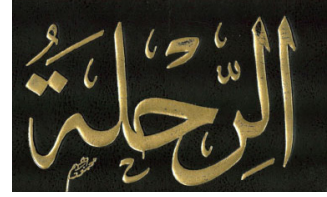 الرِّحلَةُ